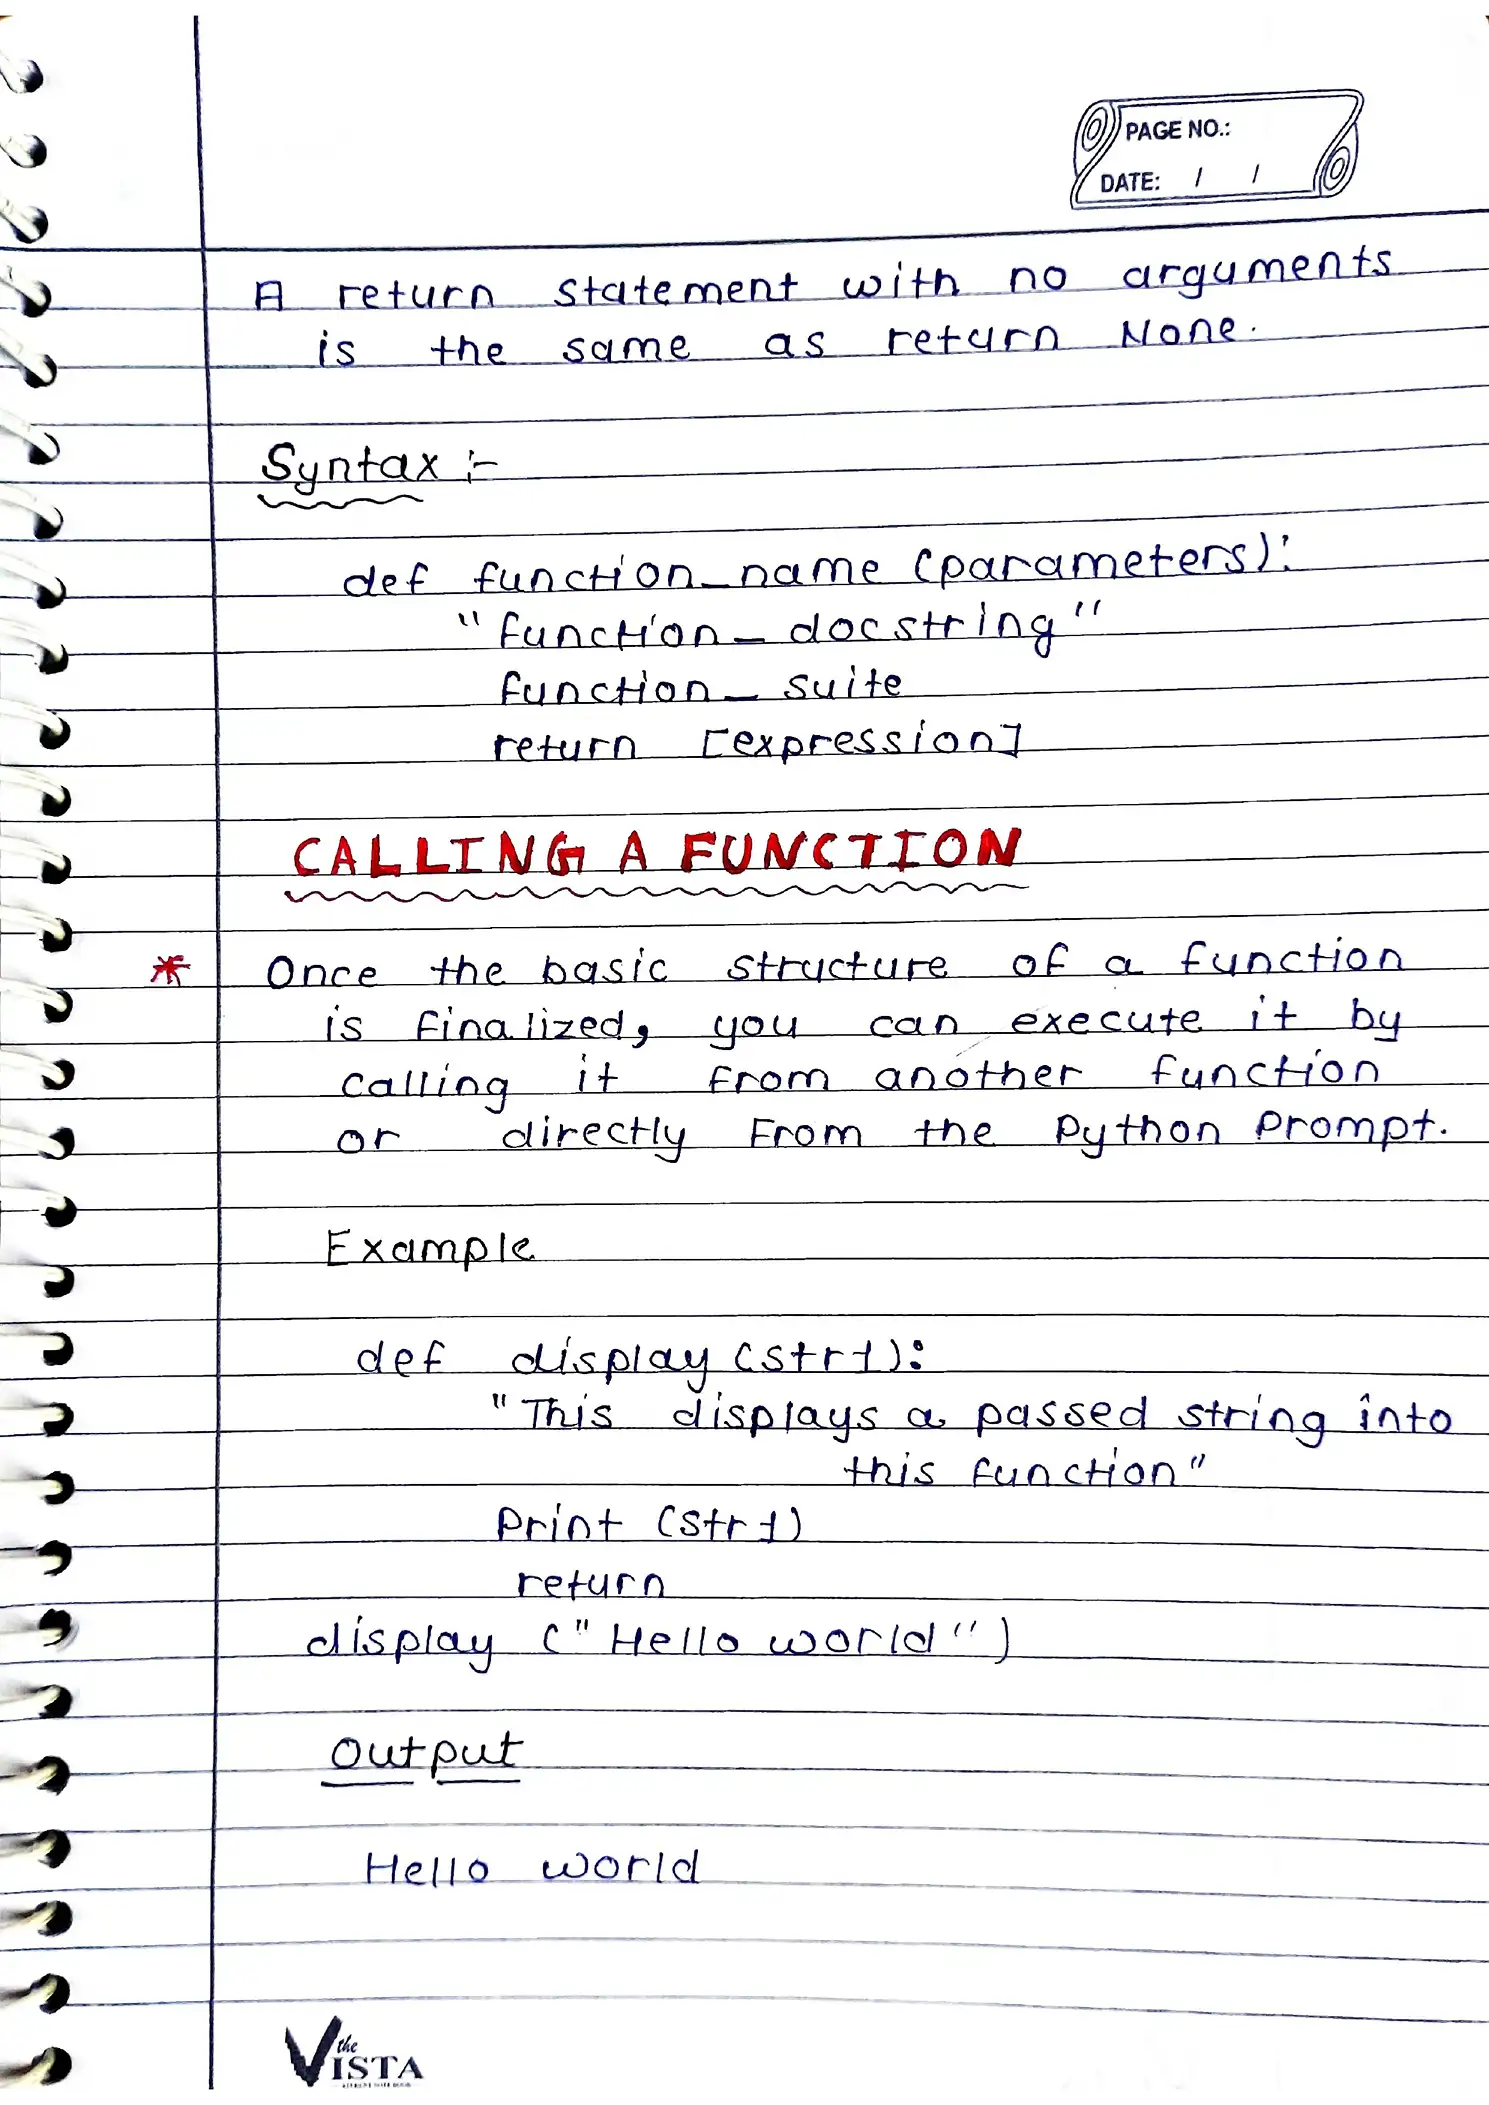 PAGE NO.:
DATE: / /
A return statement with no arguments
is the same as return None.
Syntax :-
def function_name (parameters):
"function_docstring"
function_suite
return [expression]
CALLING A FUNCTION
* Once the basic structure of a function
is finalized, you can execute it by
calling it from another function
or directly from the Python prompt.
Example
def display (str1):
"This displays a passed string into
this function"
Print (str1)
return
display ("Hello world")
Output
Hello world
the
VISTA